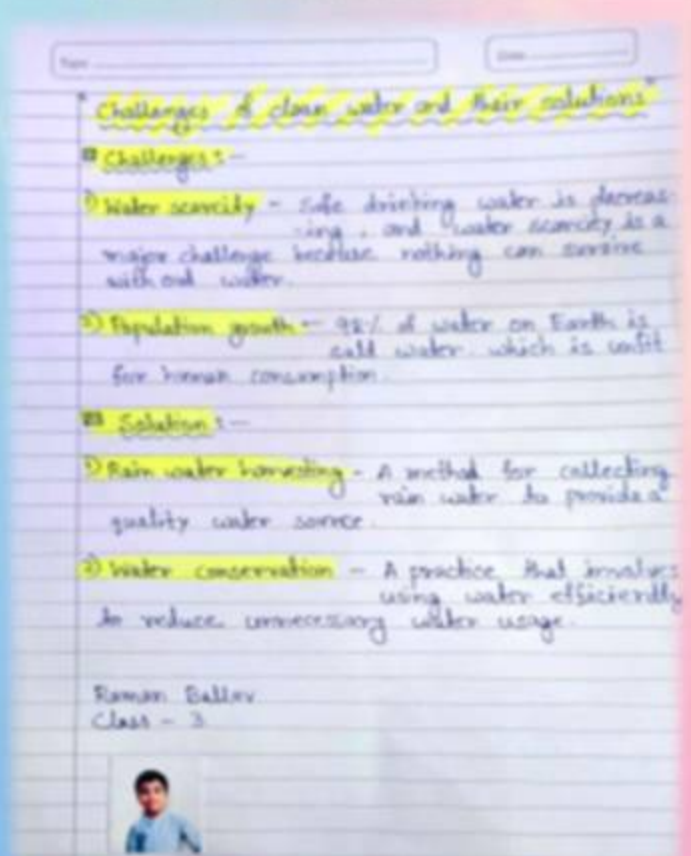 "Challenges of clean water and their solutions"
Challenges :-
1) Water scarcity - Safe drinking water is decreas-
-ing, and water scarcity is a
major challenge because nothing can survive
without water.
2) Population growth - 98% of water on Earth is
salt water which is unfit
for human consumption.
Solution :-
1) Rain water harvesting - A method for collecting
rain water to provide a
quality water source.
2) Water conservation - A practice that involves
using water efficiently
to reduce unnecessary water usage.
Raman
Class - 3